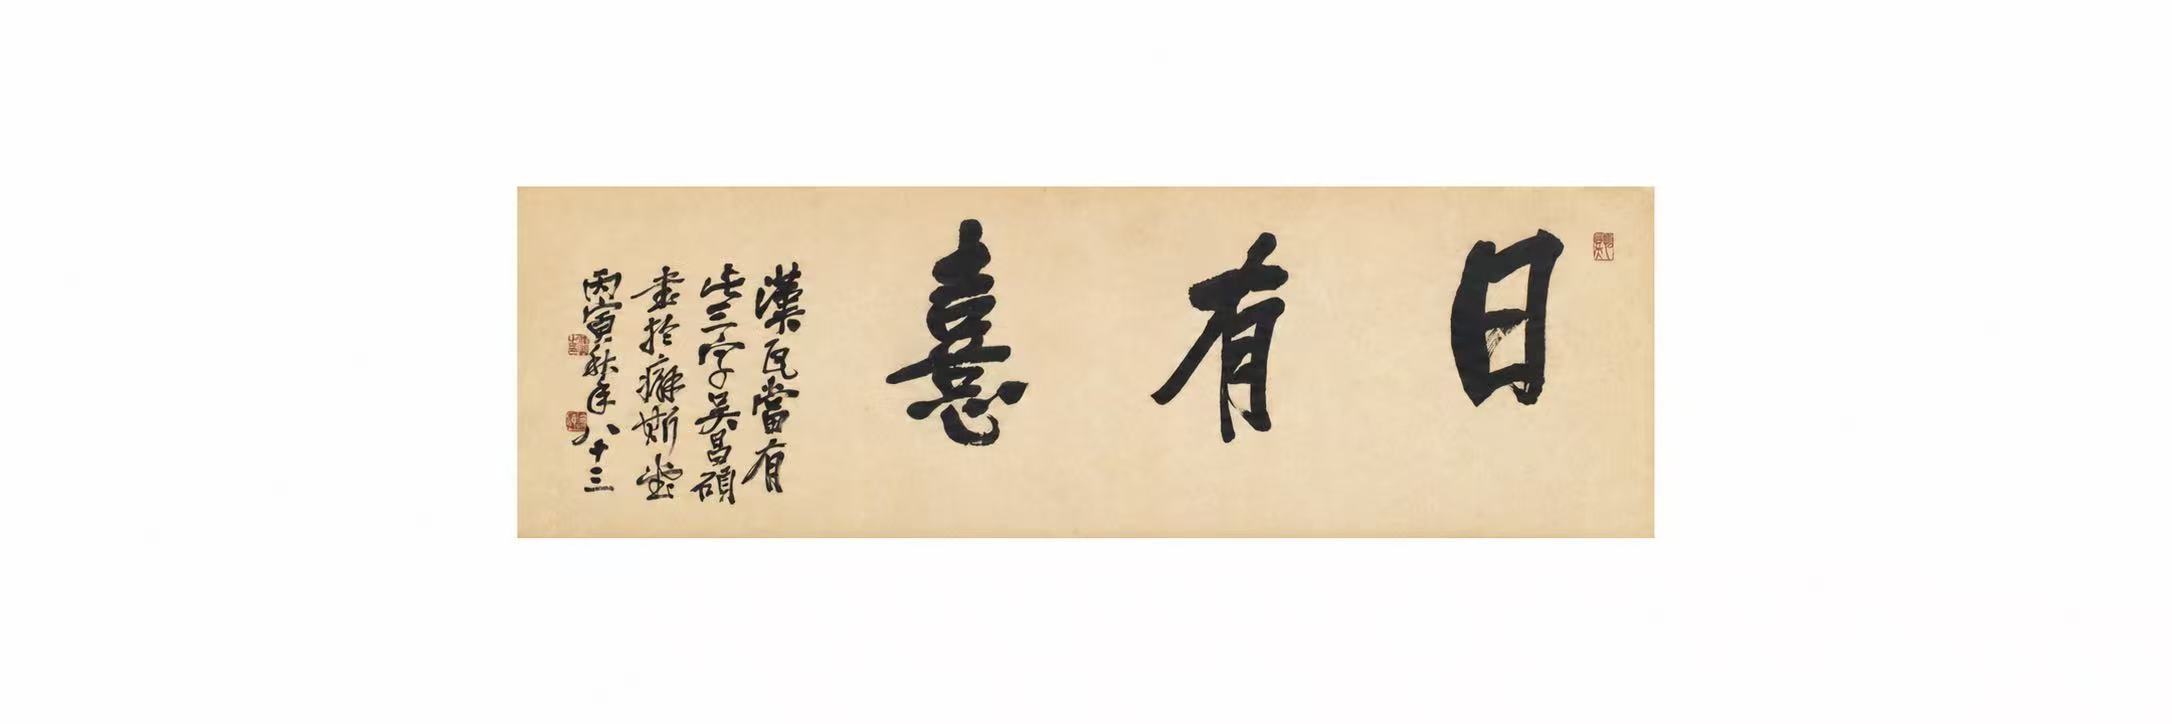 日有憙
漢瓦當有
此三字吳昌碩
書於癖斯堂
丙寅秋年八十三